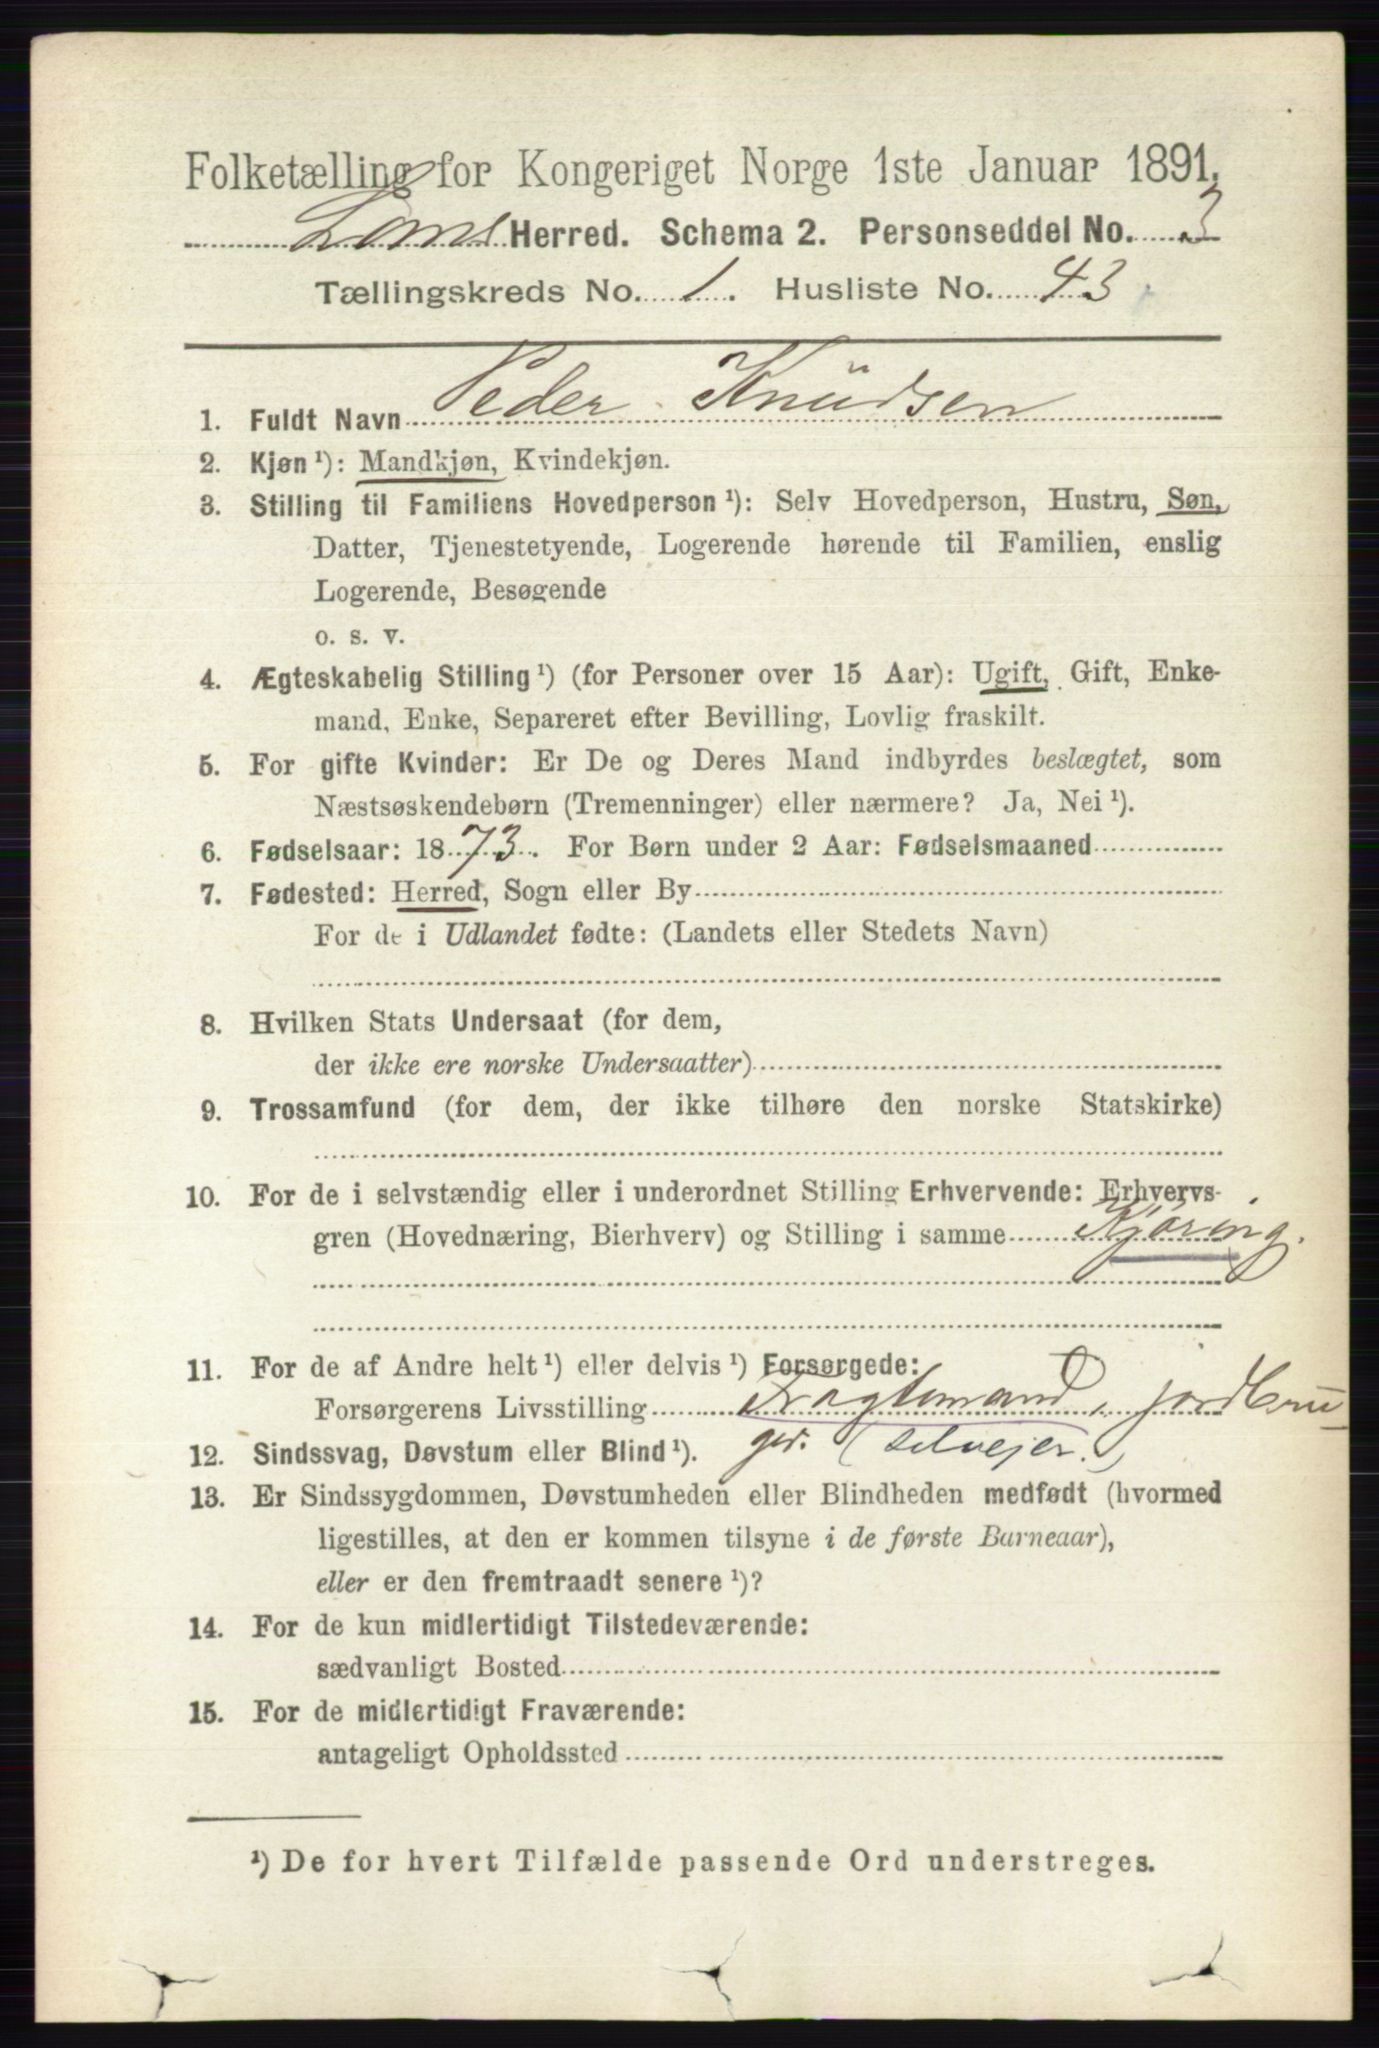 Folketælling for Kongeriget Norge 1ste Januar 1891.
Loms Herred. Schema 2. Personseddel No. 3
Tællingskreds No. 1. Husliste No. 43
1. Fuldt Navn Peder Knudsen
2. Kjøn ¹): Mandkjøn, Kvindekjøn.
3. Stilling til Familiens Hovedperson ¹): Selv Hovedperson, Hustru, Søn,
Datter, Tjenestetyende, Logerende hørende til Familien, enslig
Logerende, Besøgende
o. s. v.
4. Ægteskabelig Stilling ¹) (for Personer over 15 Aar): Ugift, Gift, Enke-
mand, Enke, Separeret efter Bevilling, Lovlig fraskilt.
5. For gifte Kvinder: Er De og Deres Mand indbyrdes beslægtet, som
Næstsøskendebørn (Tremenninger) eller nærmere? Ja, Nei ¹).
6. Fødselsaar: 1873. For Børn under 2 Aar: Fødselsmaaned
7. Fødested: Herred, Sogn eller By
For de i Udlandet fødte: (Landets eller Stedets Navn)
8. Hvilken Stats Undersaat (for dem,
der ikke ere norske Undersaatter)
9. Trossamfund (for dem, der ikke tilhøre den norske Statskirke)
10. For de i selvstændig eller i underordnet Stilling Erhvervende: Erhvervs-
gren (Hovednæring, Bierhverv) og Stilling i samme Kjøring.
11. For de af Andre helt ¹) eller delvis ¹) Forsørgede:
Forsørgerens Livsstilling Fragtemand, jordbru-
ger. (selvejer.)
12. Sindssvag, Døvstum eller Blind ¹).
13. Er Sindssygdommen, Døvstumheden eller Blindheden medfødt (hvormed
ligestilles, at den er kommen tilsyne i de første Barneaar),
eller er den fremtraadt senere ¹)?
14. For de kun midlertidigt Tilstedeværende:
sædvanligt Bosted
15. For de midlertidigt Fraværende:
antageligt Opholdssted
¹) De for hvert Tilfælde passende Ord understreges.